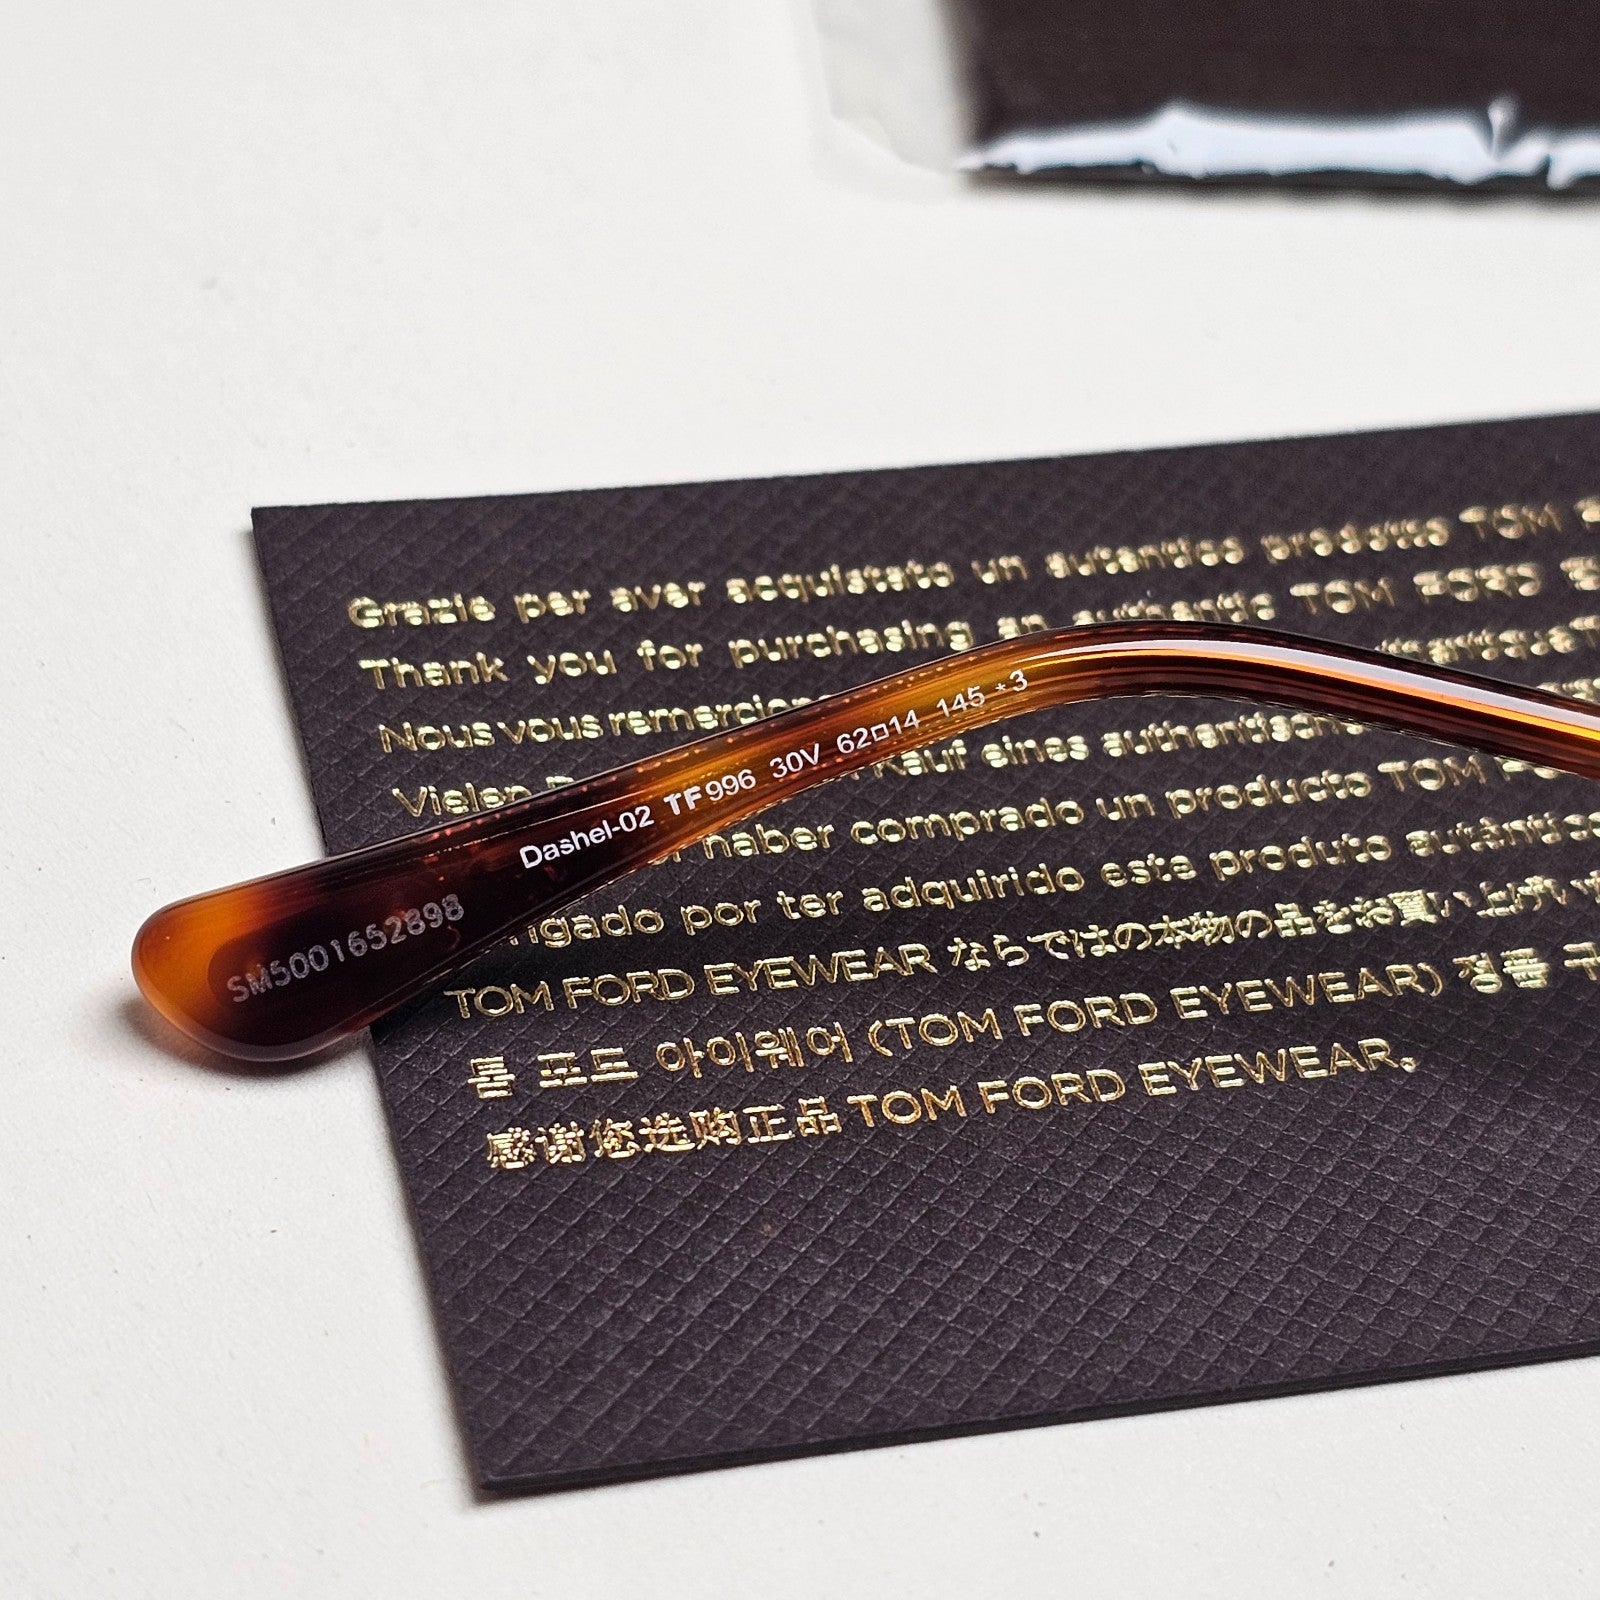 Grazie per aver acquistato un autentico prodotto TOM
Thank you for purchasing an authentic TOM FORD
Nous vous
Vielen Kauf eines
haber comprado un producto TOM
por ter adquirido este produto autêntico
TOM FORD EYEWEAR ならではの本物の品をお買い上げい
톰 포드 아이웨어 (TOM FORD EYEWEAR) 정품
感谢您选购正品 TOM FORD EYEWEAR。
Dashel-02 TF996 30V 62□14 145 *3
SM5001652898